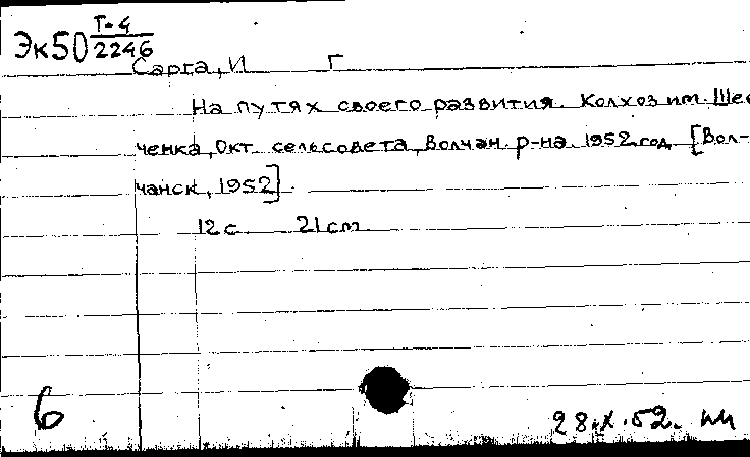 Эк50 Т-4/2246
Сарга, И Г
На путях своего развития. Колхоз им. Шев
ченка, Окт. сельсовета, Волчан. р-на. 1952 год. [Вол-
чанск, 1952].
12 с. 21 cm.
6
28.X.52.